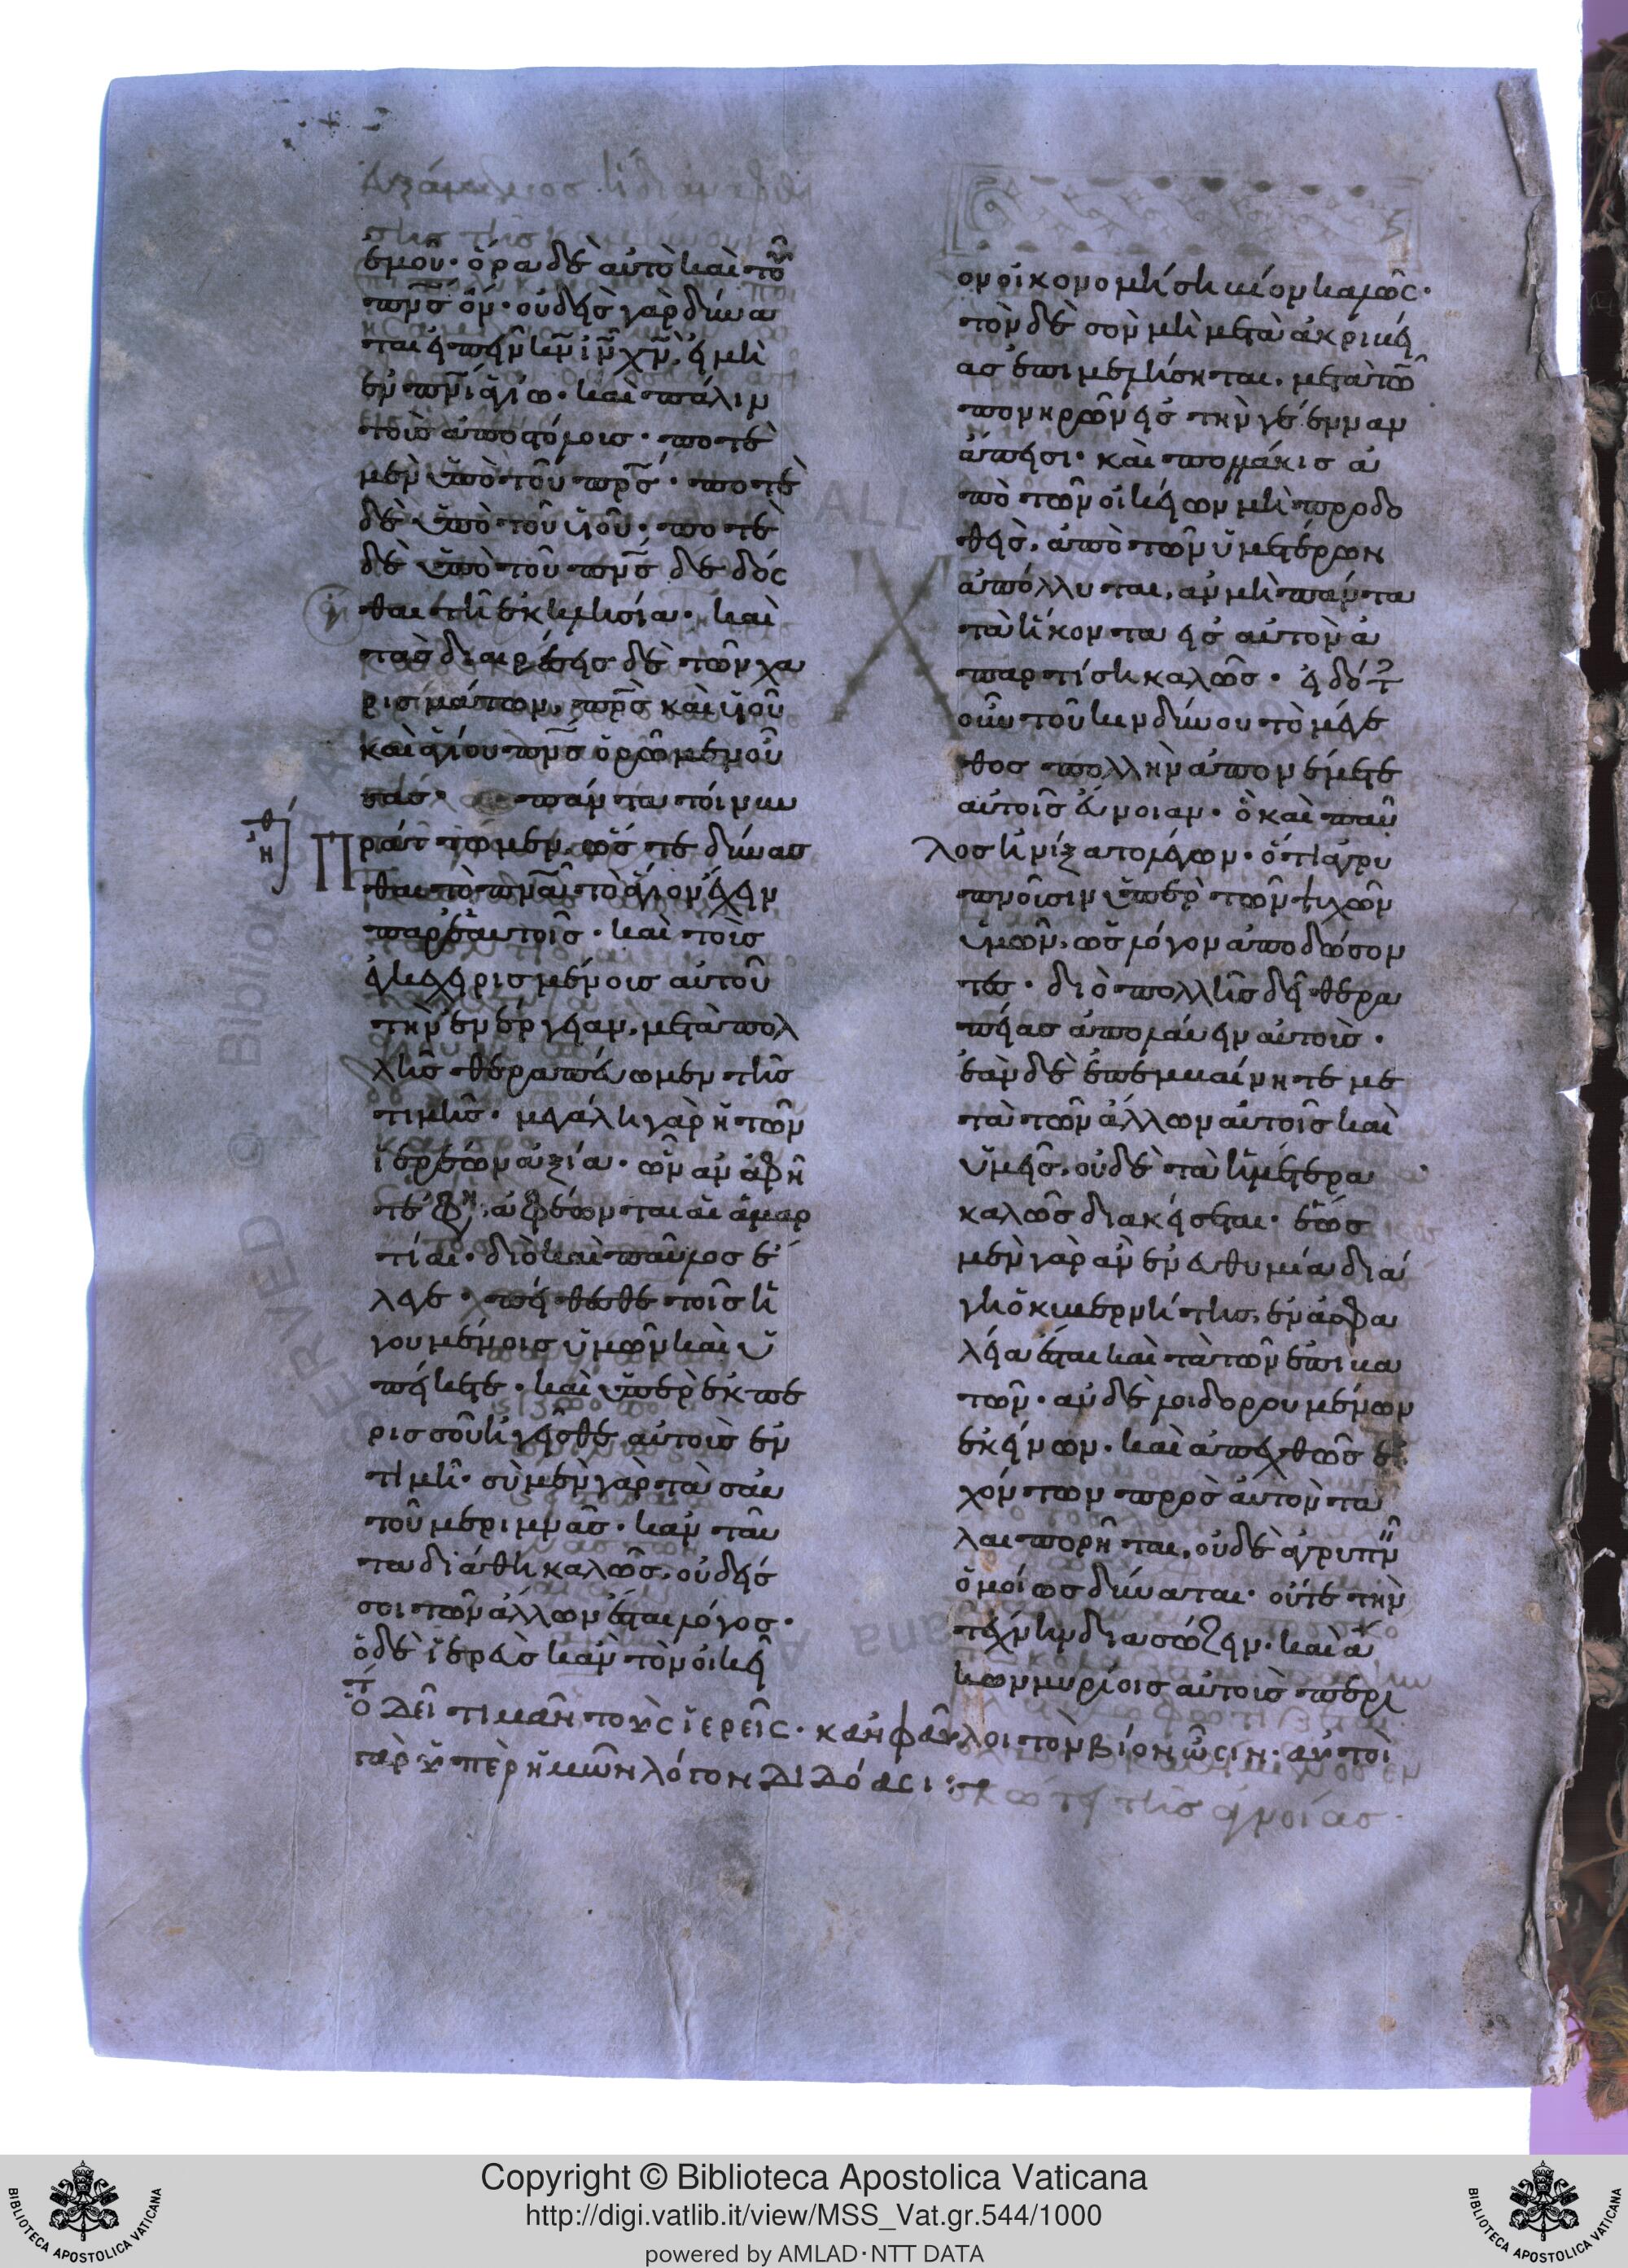 ἐμοῦ· ὅρα δὲ αὐτὸ καὶ τοῦ
πνς ὄν· οὐδεὶς γὰρ δύνα
ται εἰπεῖν κν ιν χν, εἰ μὴ
ἐν πνι ἁγίω· καὶ πάλιν
τοὺς ἀποστόλους· ποτὲ
μὲν ὑπὸ τοῦ πρς· ποτὲ
δὲ ὑπὸ τοῦ υἱοῦ· ποτὲ
δὲ ὑπὸ τοῦ πνς δεδόσ
θαι τῆ ἐκκλησία· καὶ
τὰς διαιρέσεις δὲ τῶν χα
ρισμάτων, πρς καὶ υἱοῦ
καὶ ἁγίου πνς ὁρῶμεν οὔ
σας· πάντα τοίνυν
πράττωμεν, ὥστε δύνασ
θαι τὸ πνα τὸ ἅγιον ἔχειν
παρ' ἑαυτοῖς· καὶ τοὺς
ἐγκεχειρισμένους αὐτοῦ
τὴν ἐνέργειαν, μετὰ πολ
λῆς θεραπεύωμεν τῆς
τιμῆς· μεγάλη γὰρ ἡ τῶν
ἱερέων ἀξία· ὧν ἂν ἀφῆ
τέ φη, ἀφέωνται αἱ ἁμαρ
τίαι· διὸ καὶ παῦλος ἔ
λεγε· πείθεσθε τοῖς ἡ
γουμένοις ὑμῶν καὶ ὑ
πείκετε· καὶ ὑπὲρ ἐκ πε
ρισσοῦ ἡγεῖσθε αὐτοὺς ἐν
τιμῆ· σὺ μὲν γὰρ τὰ σαυ
τοῦ μεριμνᾶς· κἂν ταῦ
τα διάθη καλῶς, οὐδείς
σοι τῶν ἄλλων ἔσται λόγος·
ὁ δὲ ἱερεὺς κἂν τὸν οἰκεῖ
ον οἰκονομήση βίον καλῶς·
τὸν δὲ σὸν μὴ μετὰ ἀκριβεί
ας ἐπιμελήσηται, μετὰ τῶν
πονηρῶν εἰς τὴν γέενναν
ἄπεισι· καὶ πολλάκις ἀ
πὸ τῶν οἰκείων μὴ προδο
θείς, ἀπὸ τῶν ὑμετέρων
ἀπόλλυται, ἂν μὴ πάντα
τὰ ἥκοντα εἰς αὐτὸν ἀ
παρτίση καλῶς· εἰδότες
οὖν τοῦ κινδύνου τὸ μέγε
θος πολλὴν ἀπονέμετε
αὐτοῖς εὔνοιαν· ὃ καὶ παῦ
λος ἠνίξατο λέγων· ὅτι ἀγρυ
πνοῦσιν ὑπὲρ τῶν ψυχῶν
ὑμῶν, ὡς λόγον ἀποδώσον
τες· διὸ πολλῆς δεῖ θερα
πείας ἀπολαύειν αὐτούς·
ἐὰν δὲ ἐπεμβαίνητε με
τὰ τῶν ἄλλων αὐτοῖς καὶ
ὑμεῖς, οὐδὲ τὰ ἡμέτερα
καλῶς διακείσεται· ἕως
μὲν γὰρ ἂν ἐν εὐθυμία διά
γη ὁ κυβερνήτης, ἐν ἀσφα
λεία ἔσται καὶ τὰ τῶν ἐπιβα
τῶν· ἂν δὲ λοιδορουμένων
ἐκείνων· καὶ ἀπεχθῶς ἐ
χόντων πρὸς αὐτὸν τα
λαιπορῆται, οὐδὲ ἀγρυπνεῖν
ὁμοίως δύναται· οὔτε τὴν
τέχνην διασώζειν· καὶ ἄ
κων μυρίοις αὐτοὺς περι
Ὅτι δεῖ τιμᾶν τοὺς ἱερεῖς· κἂν φαῦλοι τὸν βίον ὦσιν· αὐτοὶ
γὰρ ὑπὲρ ἡμῶν λόγον διδόασι:
Copyright © Biblioteca Apostolica Vaticana
http://digi.vatlib.it/view/MSS_Vat.gr.544/1000
powered by AMLAD·NTT DATA
BIBLIOTECA APOSTOLICA VATICANA
BIBLIOTECA APOSTOLICA VATICANA